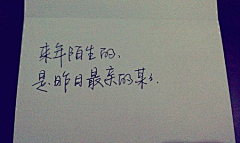 来年陌生的、
是昨日最亲的某某.